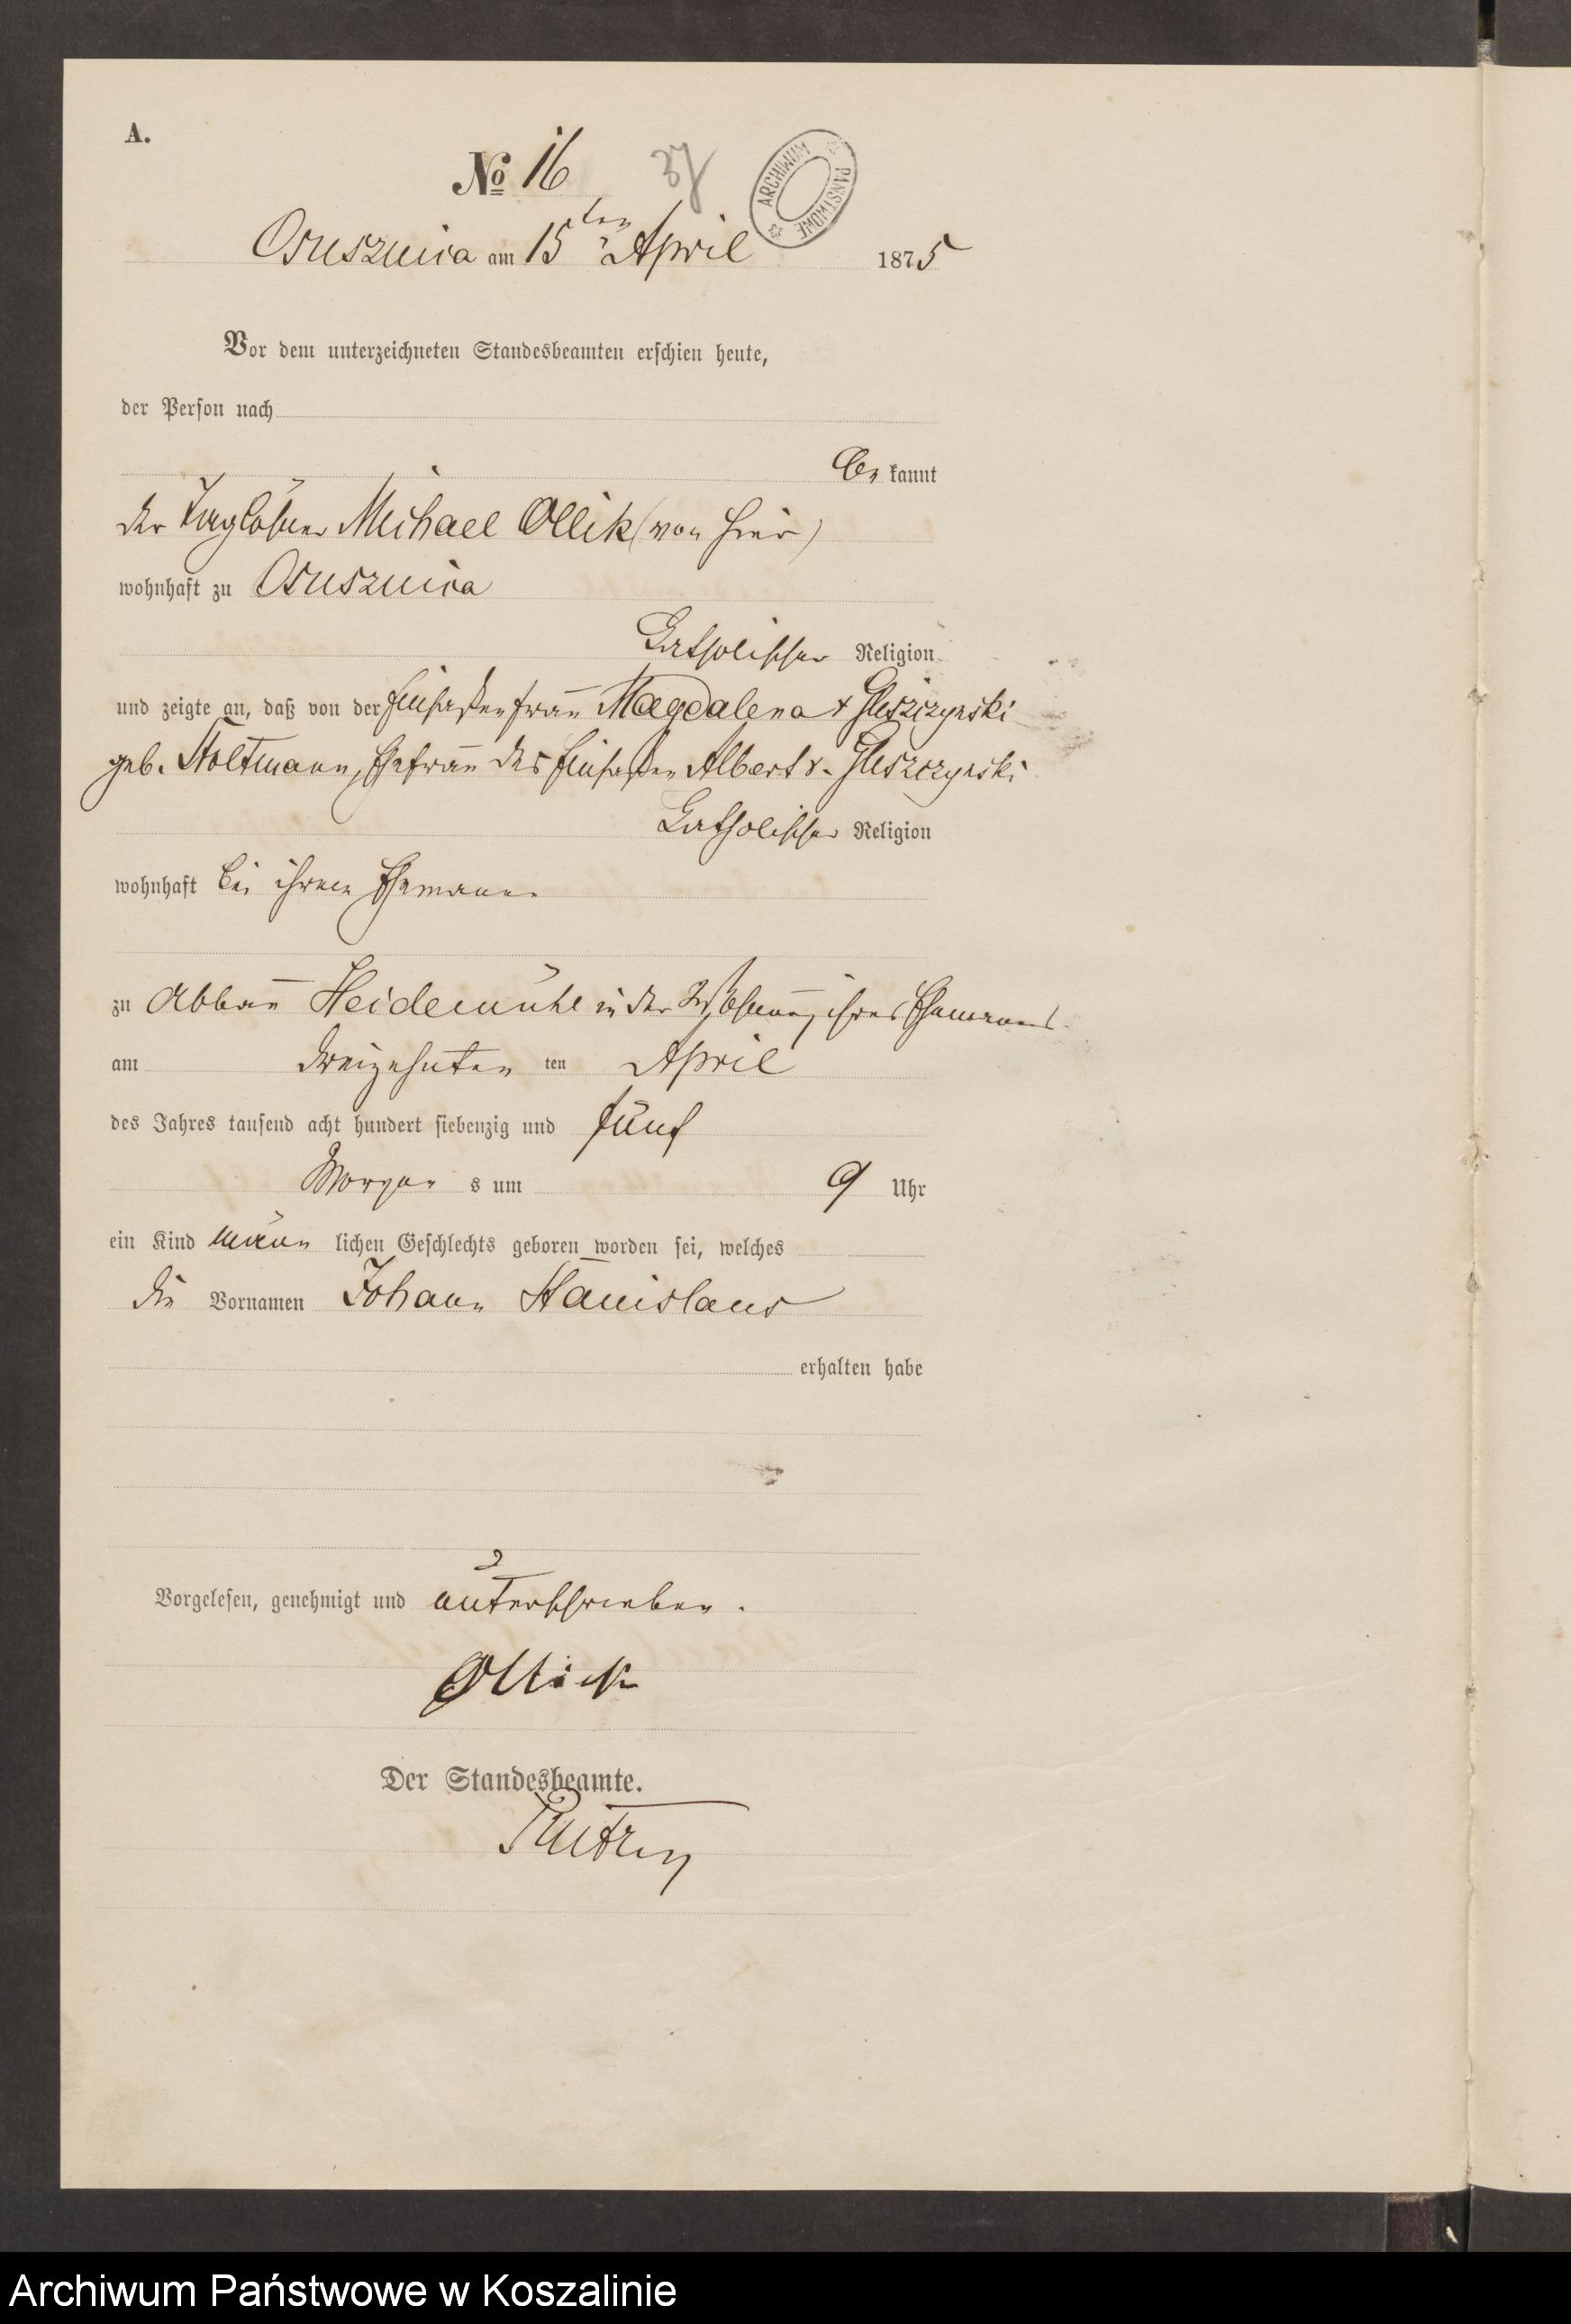 A.
No 16 37
ARCHIWUM PAŃSTWOWE
Osusznica am 15ten April 1875
Vor dem unterzeichneten Standesbeamten erschien heute,
der Person nach
be kannt
der Taglöhner Michael Ollik (von hier)
wohnhaft zu Osusznica
Catholischer Religion
und zeigte an, daß von der Einsaßenfrau Magdalena v Gleszczynski
geb. Stoltmann, Ehefrau des Einsaßen Albert v. Gleszczynski
Catholischer Religion
wohnhaft bei ihrem Ehemanne
zu Abbau Heidemühl in der Wohnung ihres Ehemannes
am dreizehnten ten April
des Jahres tausend acht hundert siebenzig und fünf
Morgen s um 9 Uhr
ein Kind männ lichen Geschlechts geboren worden sei, welches
die Vornamen Johann Stanislaus
erhalten habe
Vorgelesen, genehmigt und unterschrieben.
Ollick
Der Standesbeamte.
Archiwum Państwowe w Koszalinie